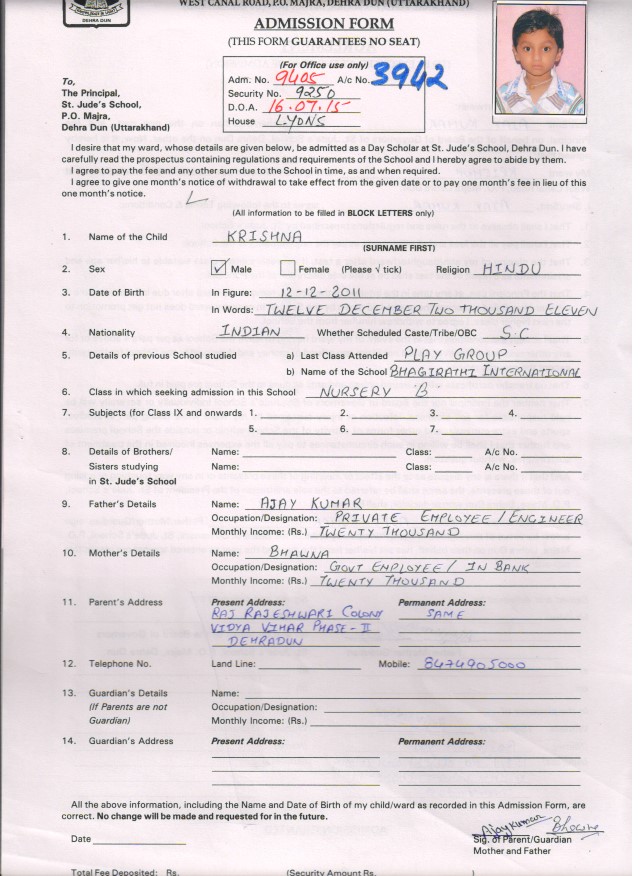 DEHRA DUN
WEST CANAL ROAD, P.O. MAJRA, DEHRA DUN (UTTARAKHAND)
ADMISSION FORM
(THIS FORM GUARANTEES NO SEAT)
(For Office use only)
Adm. No. 9405 A/c No. 3942
Security No. 9250
D.O.A. 16.07.15
House LYONS
To,
The Principal,
St. Jude's School,
P.O. Majra,
Dehra Dun (Uttarakhand)
I desire that my ward, whose details are given below, be admitted as a Day Scholar at St. Jude's School, Dehra Dun. I have
carefully read the prospectus containing regulations and requirements of the School and I hereby agree to abide by them.
I agree to pay the fee and any other sum due to the School in time, as and when required.
I agree to give one month's notice of withdrawal to take effect from the given date or to pay one month's fee in lieu of this
one month's notice.
(All information to be filled in BLOCK LETTERS only)
1. Name of the Child KRISHNA
(SURNAME FIRST)
2. Sex ✓ Male Female (Please √ tick) Religion HINDU
3. Date of Birth In Figure: 12-12-2011
In Words: TWELVE DECEMBER TWO THOUSAND ELEVEN
4. Nationality INDIAN Whether Scheduled Caste/Tribe/OBC S.C
5. Details of previous School studied a) Last Class Attended PLAY GROUP
b) Name of the School BHAGIRATHI INTERNATIONAL
6. Class in which seeking admission in this School NURSERY B
7. Subjects (for Class IX and onwards 1. 2. 3. 4.
5. 6. 7.
8. Details of Brothers/ Name: Class: A/c No.
Sisters studying Name: Class: A/c No.
in St. Jude's School
9. Father's Details Name: AJAY KUMAR
Occupation/Designation: PRIVATE EMPLOYEE/ENGINEER
Monthly Income: (Rs.) TWENTY THOUSAND
10. Mother's Details Name: BHAWNA
Occupation/Designation: GOVT EMPLOYEE/ IN BANK
Monthly Income: (Rs.) TWENTY THOUSAND
11. Parent's Address Present Address: Permanent Address:
RAJ RAJESHWARI COLONY SAME
VIDYA VIHAR PHASE-II
DEHRADUN
12. Telephone No. Land Line: Mobile: 8474905000
13. Guardian's Details Name:
(If Parents are not Occupation/Designation:
Guardian) Monthly Income: (Rs.)
14. Guardian's Address Present Address: Permanent Address:
All the above information, including the Name and Date of Birth of my child/ward as recorded in this Admission Form, are
correct. No change will be made and requested for in the future.
Ajay Kumar Bhawna
Date Sig. of Parent/Guardian
Mother and Father
Total Fee Deposited: Rs. (Security Amount Rs. )